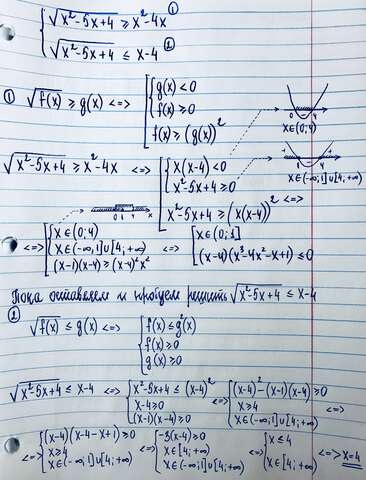 { √(x²-5x+4) ≥ x²-4x ①
{ √(x²-5x+4) ≤ x-4 ②
① √f(x) ≥ g(x) <=> [ { g(x) < 0
{ f(x) ≥ 0
f(x) ≥ (g(x))²
0 4
x∈(0;4)
√(x²-5x+4) ≥ x²-4x <=> [ { x(x-4) < 0
{ x²-5x+4 ≥ 0
x²-5x+4 ≥ (x(x-4))² <=>
+ 1 - 4 +
x∈(-∞;1]∪[4;+∞)
0 1 4 x
<=> [ { x∈(0;4)
{ x∈(-∞;1]∪[4;+∞)
(x-1)(x-4) ≥ (x-4)²x²
<=> [ x∈(0;1]
(x-4)(x³-4x²-x+1) ≤ 0
Пока оставляем и пробуем решить √(x²-5x+4) ≤ x-4
②
√f(x) ≤ g(x) <=> { f(x) ≤ g²(x)
{ f(x) ≥ 0
{ g(x) ≥ 0
√(x²-5x+4) ≤ x-4 <=> { x²-5x+4 ≤ (x-4)²
{ x-4 ≥ 0
{ (x-1)(x-4) ≥ 0
<=> { (x-4)²-(x-1)(x-4) ≥ 0
{ x ≥ 4
{ x∈(-∞;1]∪[4;+∞) <=>
<=> { (x-4)(x-4-x+1) ≥ 0
{ x ≥ 4
{ x∈(-∞;1]∪[4;+∞)
<=> { -3(x-4) ≥ 0
{ x∈[4;+∞)
{ x∈(-∞;1]∪[4;+∞)
<=> { x ≤ 4
{ x∈[4;+∞)
<=> x=4